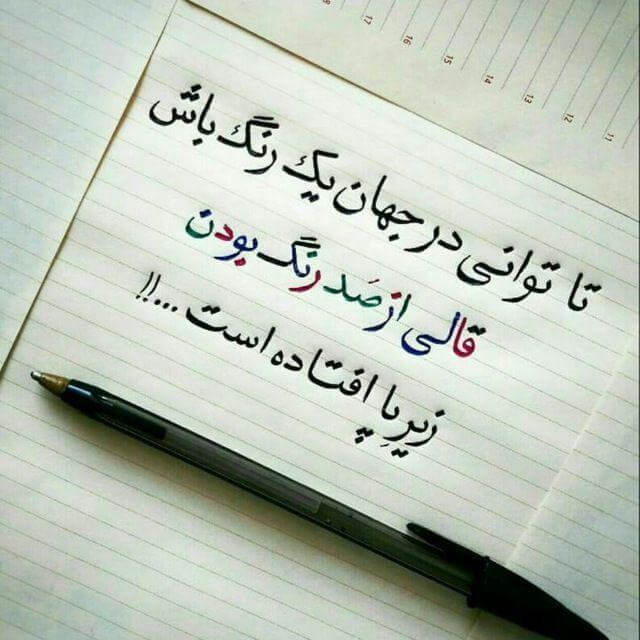 تا توانی در جهان یک رنگ باش
قالی از صَد رنگ بودن
زیرِپا افتاده است ...!!
18
17
16
15
14
13
12
11